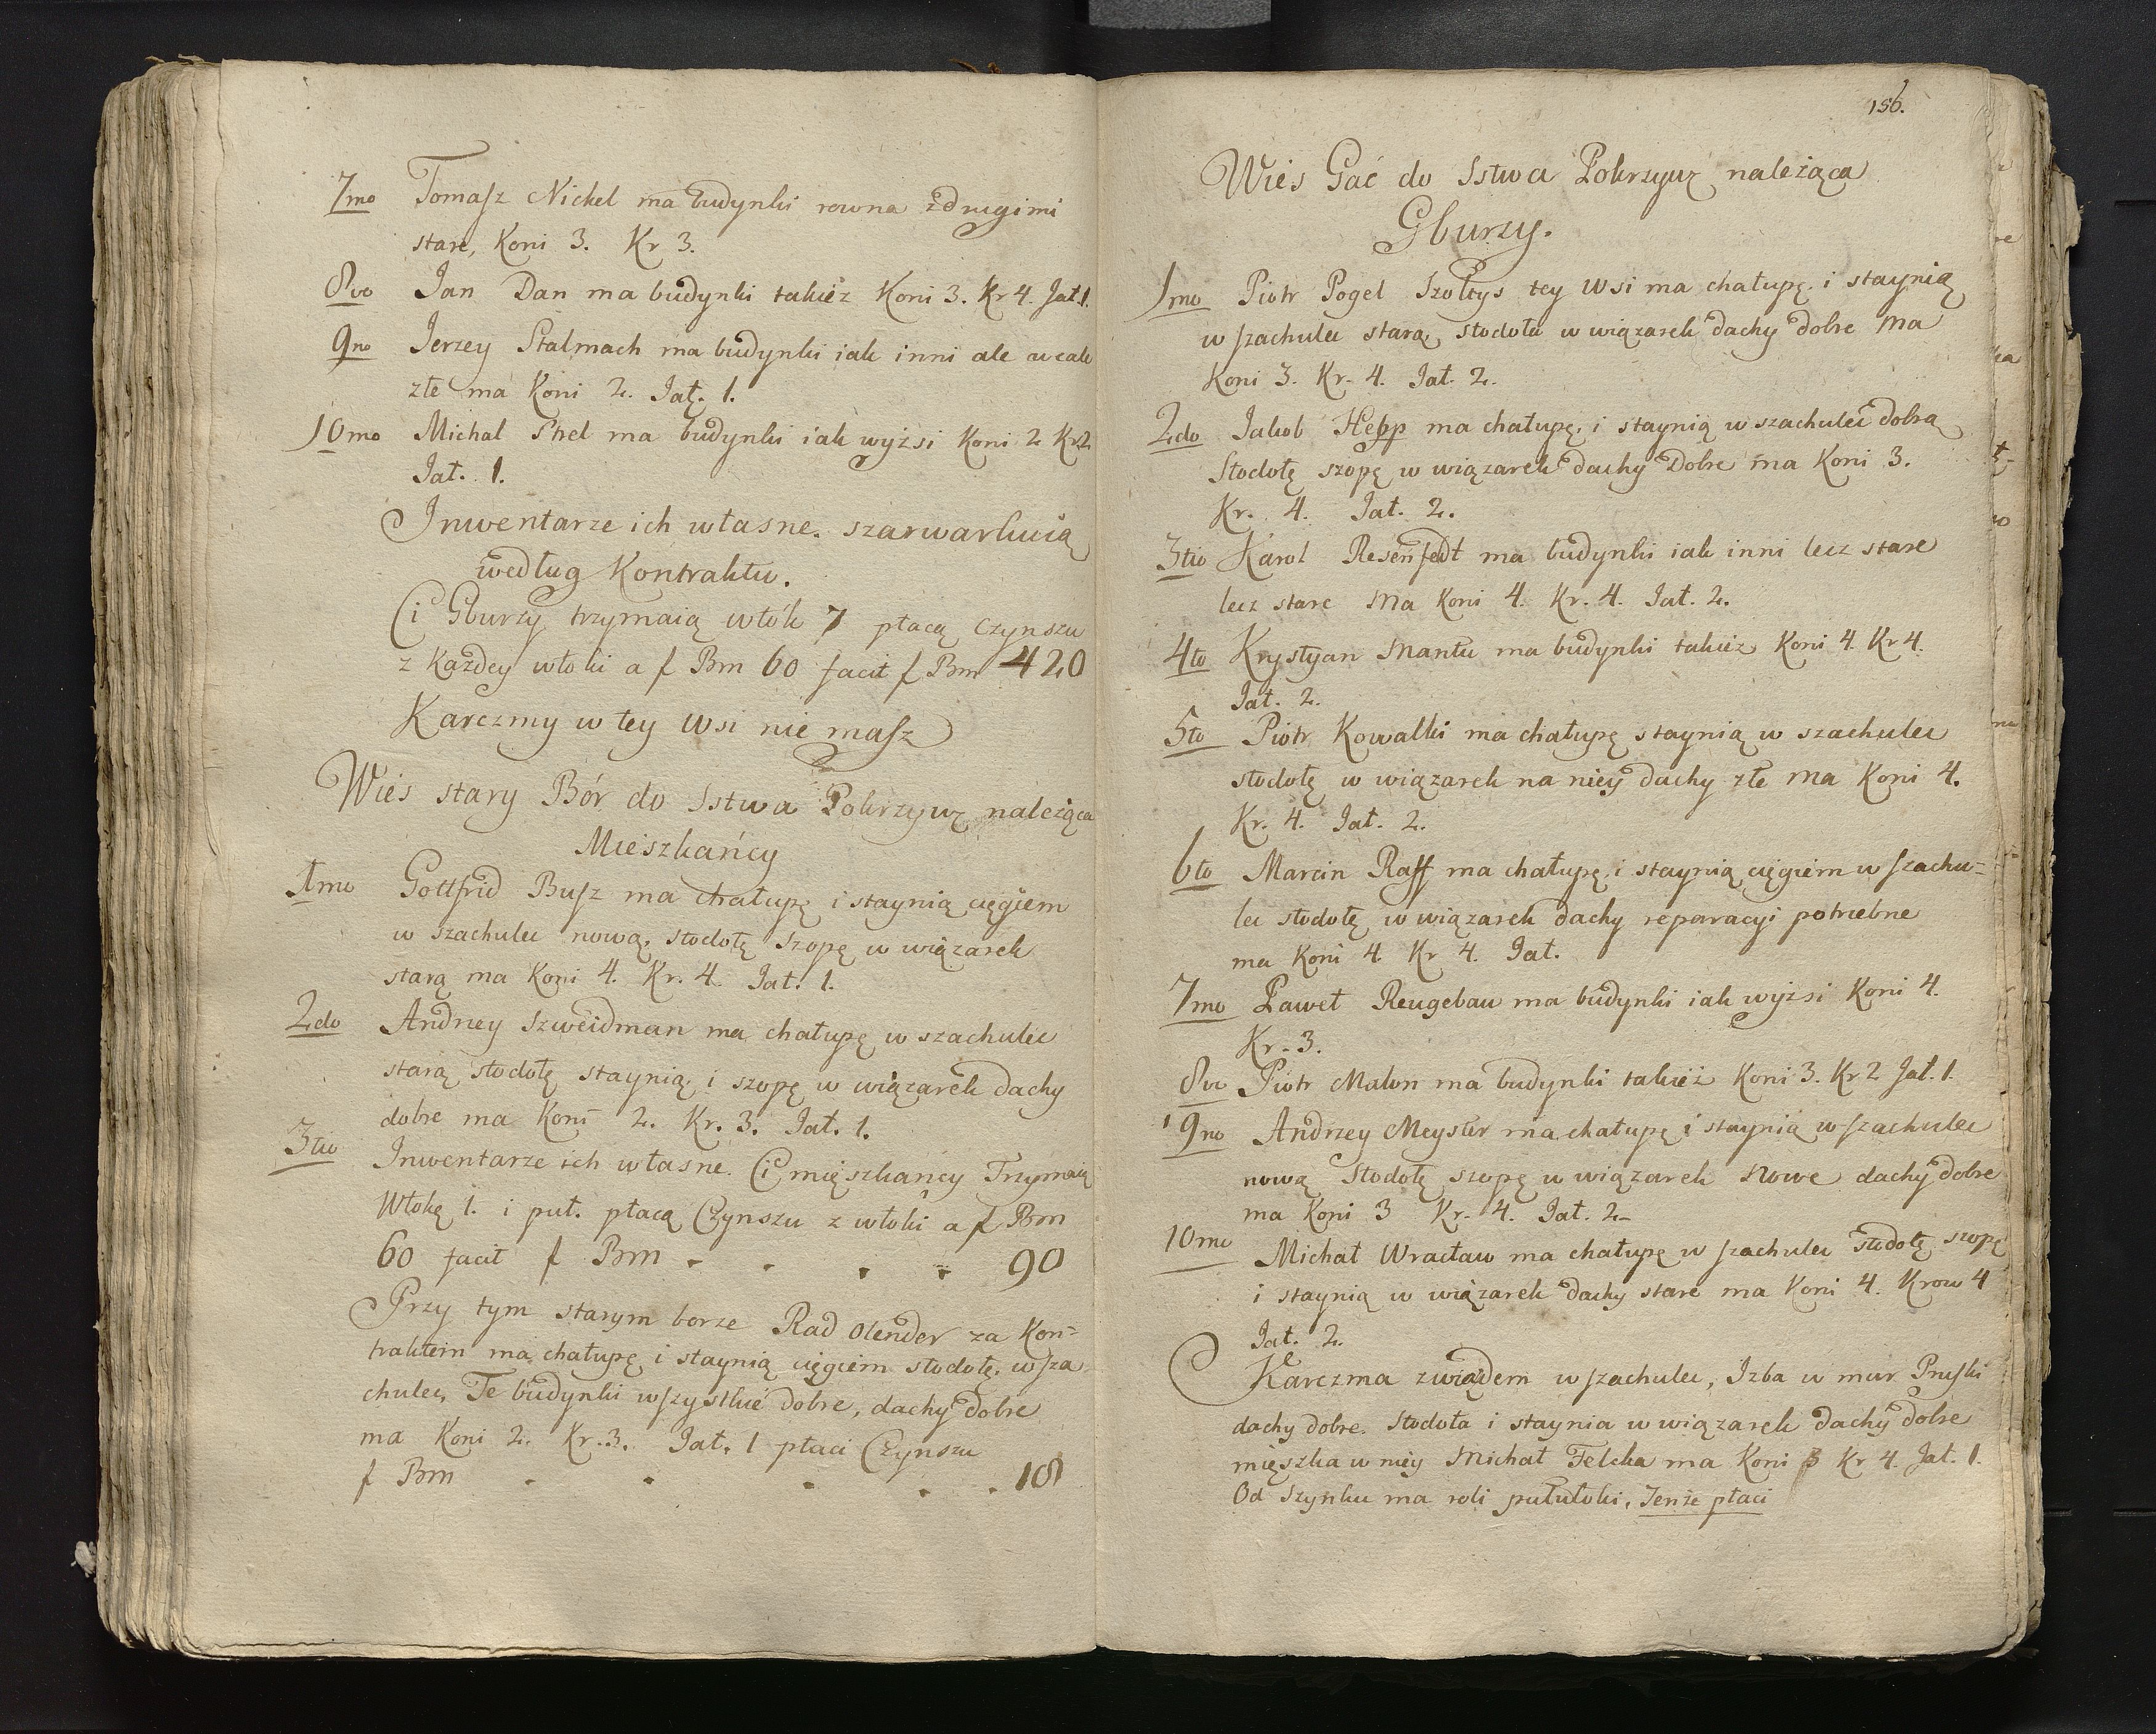 7mo Tomasz Nickel ma budynki rowna zdrugimi
stare, Koni 3. Kr 3.
8vo Jan Dan ma budynki takież Koni 3. Kr 4. Jał. 1.
9no Jerzey Stalmach ma budynki iak inni ale wcale
złe ma Koni 2. Jał. 1.
10mo Michal Strel ma budynki iak wyżsi Koni 2 Kr 2
Jał. 1.
Inwentarze ich własne. szarwarkuią
według Kontraktu.
Ci Gburzy trzymaią włók 7 płacą Czynszu
z Każdey włoki a f Bm 60 facit f Bm 420
Karczmy w tey Wsi nie masz
Wieś stary Bór do Sstwa Pokrzyw należąca
Mieszkańcy
1mo Gottfrid Busz ma chałupę i staynią cięgiem
w szachulec nową, stodołę szopę w wiązarek
starą ma Koni 4. Kr. 4. Jał. 1.
2do Andrzey Szweidman ma chałupę w szachulec
starą stodołę staynią, i szopę w wiązarek dachy
dobre ma Koni 2. Kr. 3. Jał. 1.
3tio Inwentarze ich własne. Ci mięszkańcy Trzymaią
Włokę 1. i puł. płacą Czynszu z włoki a f Bm
60 facit f Bm . . . . 90
Przy tym starym borze Rad Olender za Kon=
traktem ma chałupę i staynią cięgiem stodołę, w sza
chulec, Te budynki wszystkie dobre, dachy dobre
ma Koni 2. Kr. 3. Jał. 1 płaci Czynszu
f Bm . . . . . 18
156.
Wieś Gać do Sstwa Pokrzyw należąca
Gburzy.
1mo Piotr Pogel Szołtys tey Wsi ma chałupę i staynią
w szachulec starą, stodoła w wiązarek dachy dobre ma
Koni 3. Kr. 4. Jał. 2.
2do Jakob Hepp ma chałupę, i staynią w szachulec dobrą
Stodołę szopę w wiązarek dachy Dobre ma Koni 3.
Kr. 4. Jał. 2.
3tio Karol Resenfedt ma budynki iak inni lecz stare
lecz stare ma Koni 4. Kr. 4. Jał. 2.
4to Krystyan Mantu ma budynki takież Koni 4. Kr 4.
Jał. 2.
5to Piotr Kowalki ma chałupę staynią w szachulec
stodołę w wiązarek na niey dachy złe ma Koni 4.
Kr. 4. Jał. 2.
6to Marcin Raff ma chałupę, i staynią cięgiem w szachu=
lec stodołę w wiązarek dachy reparacyi potrzebne
ma Koni 4. Kr 4. Jał.
7mo Paweł Reugebau ma budynki iak wyżsi Koni 4.
Kr. 3.
8vo Piotr Malon ma budynki takież Koni 3. Kr 2 Jał. 1.
9no Andrzey Meyster ma chałupę i staynią w szachulec
nową Stodołę szopę w wiązarek nowe dachy dobre
ma Koni 3 Kr. 4. Jał. 2
10mo Michał Wracław ma chałupę w szachulec stodołę szopę
i staynią w wiązarek dachy stare ma Koni 4. Krow 4
Jał. 2.
Karczma zwiądem w szachulec, Izba w mur Pruski
dachy dobre. Stodoła i staynia w wiązarek dachy dobre
mięszka w niey Michał Felcka ma Koni 3 Kr 4. Jał. 1.
Od Szynku ma roli pułułoki, Tenże płaci